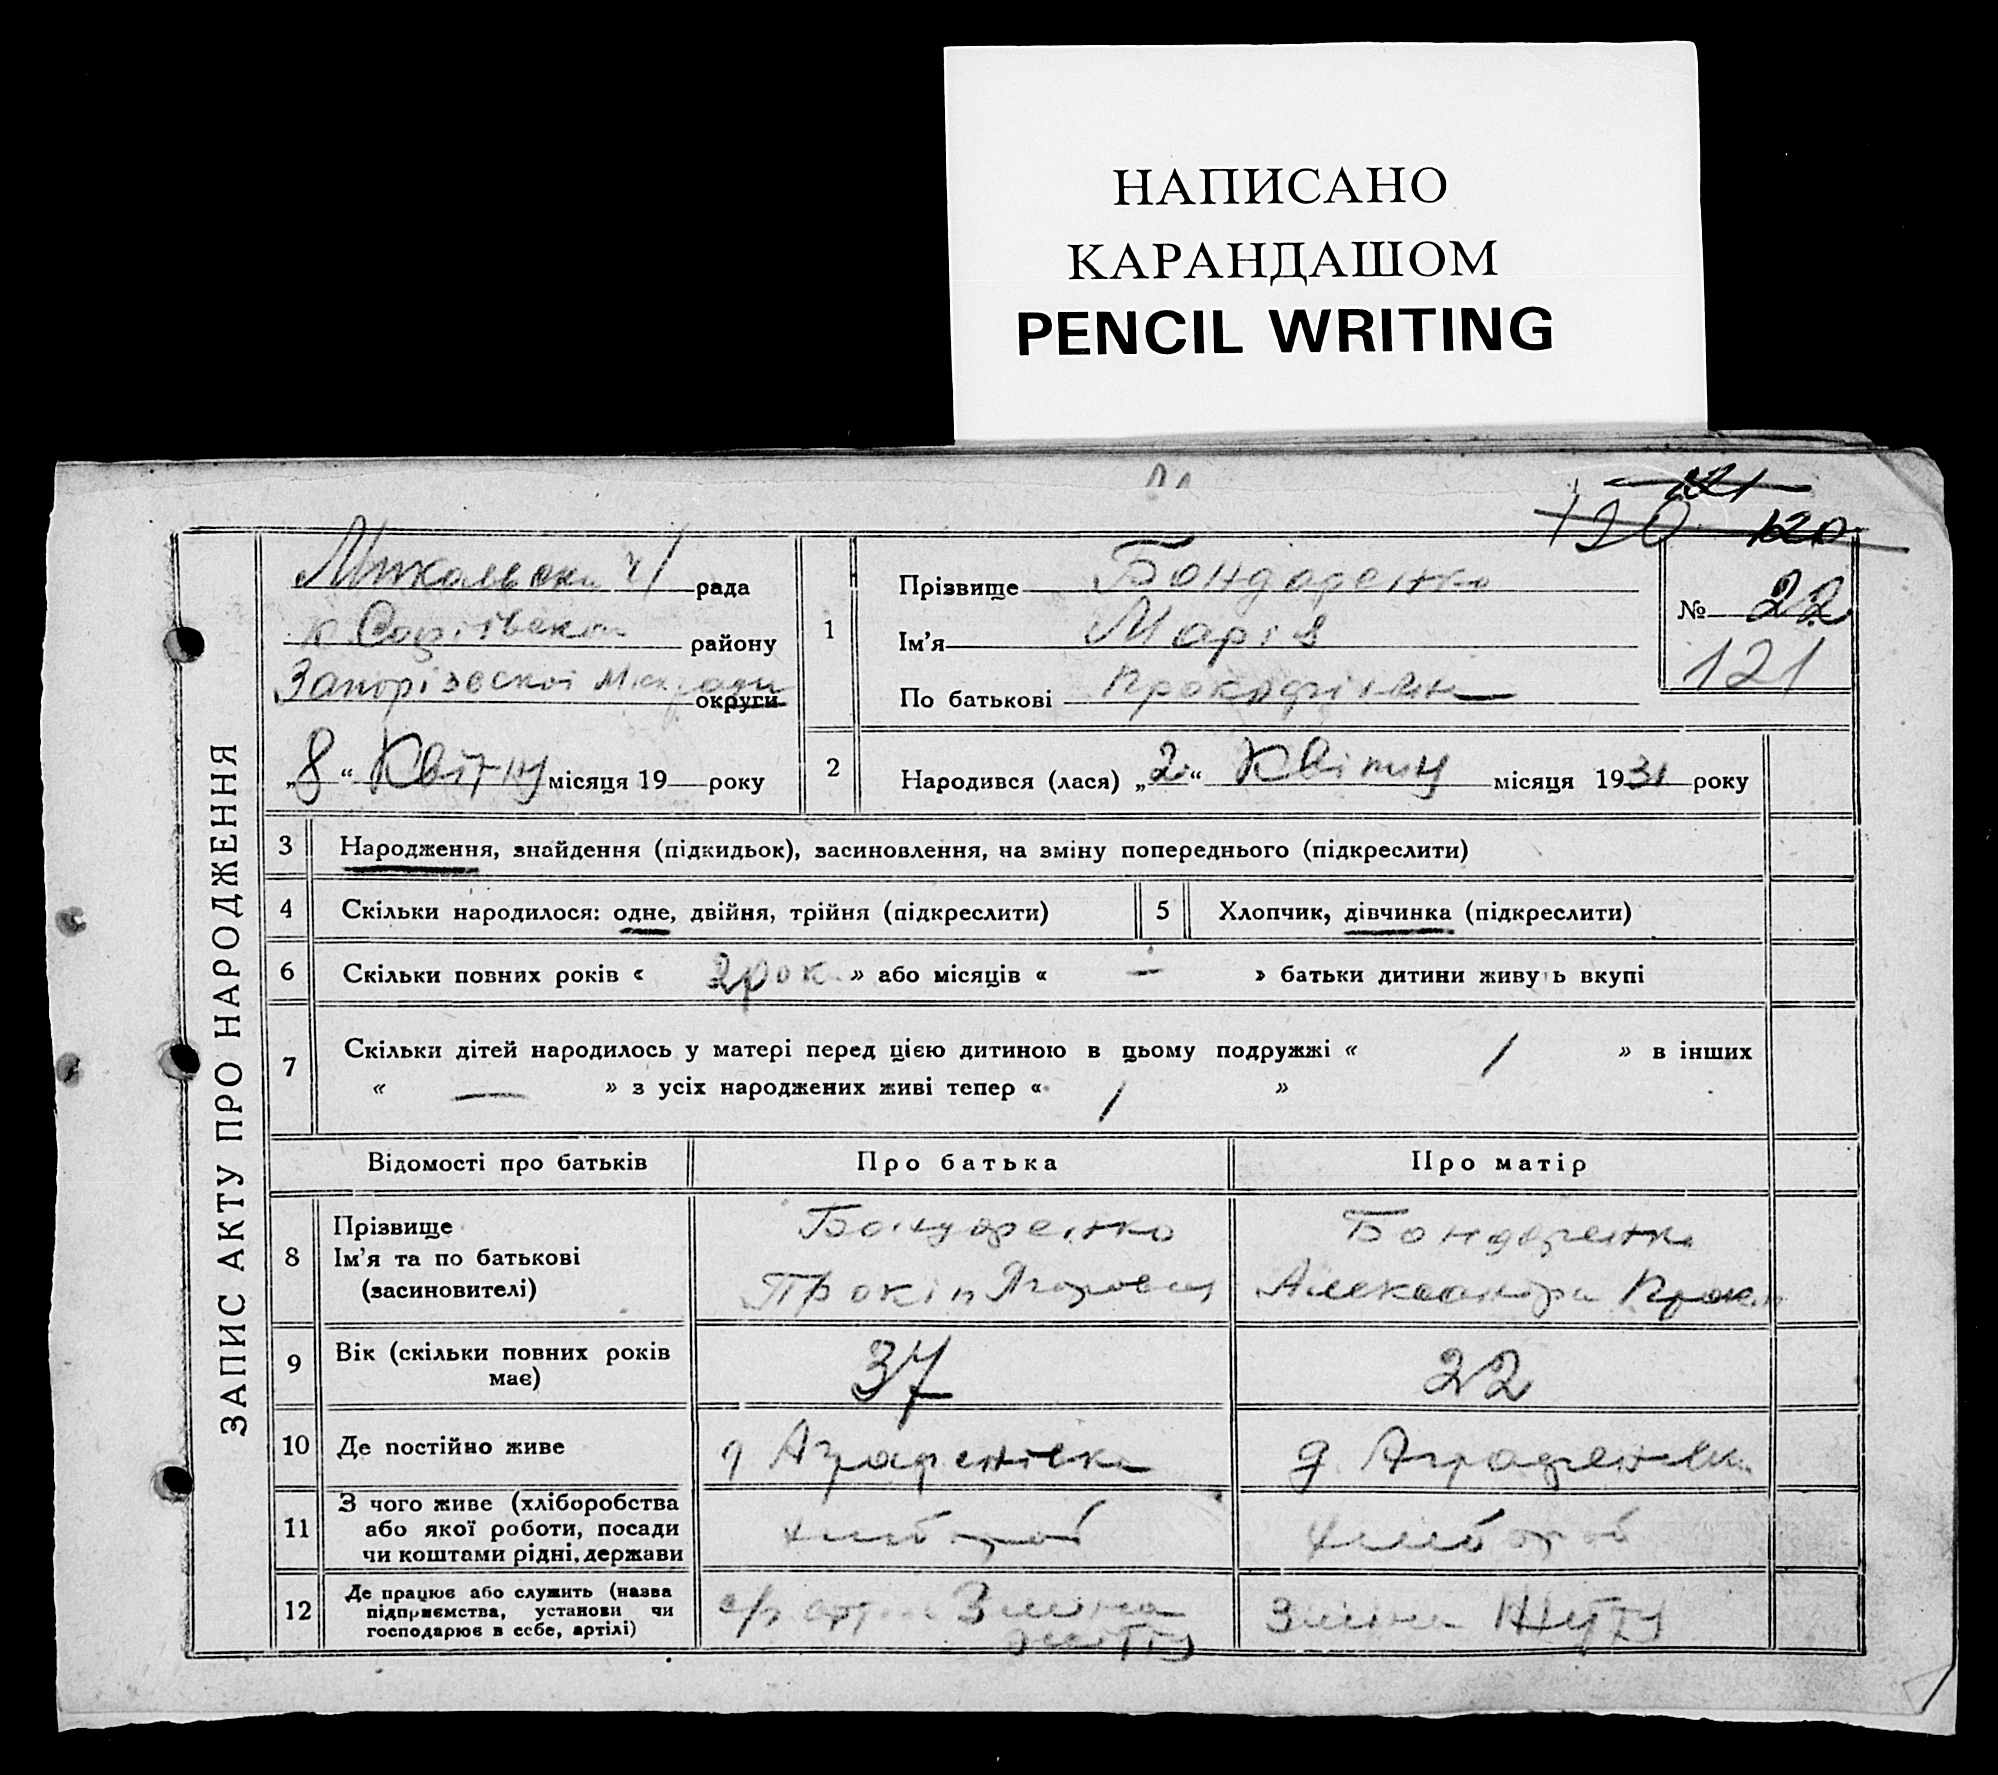 НАПИСАНО
КАРАНДАШОМ
PENCIL WRITING
121
120 120
ЗАПИС АКТУ ПРО НАРОДЖЕННЯ
рада
району
Запорізської округи
„8“ Квітня місяця 19 року
1
Прізвище Бондаренко
Ім'я Марія
По батькові
№ 22
121
2
Народився (лася) „2“ Квітня місяця 1931 року
3 Народження, знайдення (підкидьок), засиновлення, на зміну попереднього (підкреслити)
4 Скільки народилося: одне, двійня, трійня (підкреслити)
5 Хлопчик, дівчинка (підкреслити)
6 Скільки повних років « 2 рок » або місяців « — » батьки дитини живуть вкупі
7 Скільки дітей народилось у матері перед цією дитиною в цьому подружжі « 1 » в інших
« — » з усіх народжених живі тепер « 1 »
Відомості про батьків Про батька Про матір
8 Прізвище
Ім'я та по батькові
(засиновителі)
Бондаренко
Прокіп
Бондаренко
Александра
9 Вік (скільки повних років
має)
37 22
10 Де постійно живе Аграфенівка д. Аграфенівка
11 З чого живе (хліборобства
або якої роботи, посади
чи коштами рідні, держави
хлібороб хлібороб
12 Де працює або служить (назва
підприємства, установи чи
господарює в себе, артілі)
с/г арт